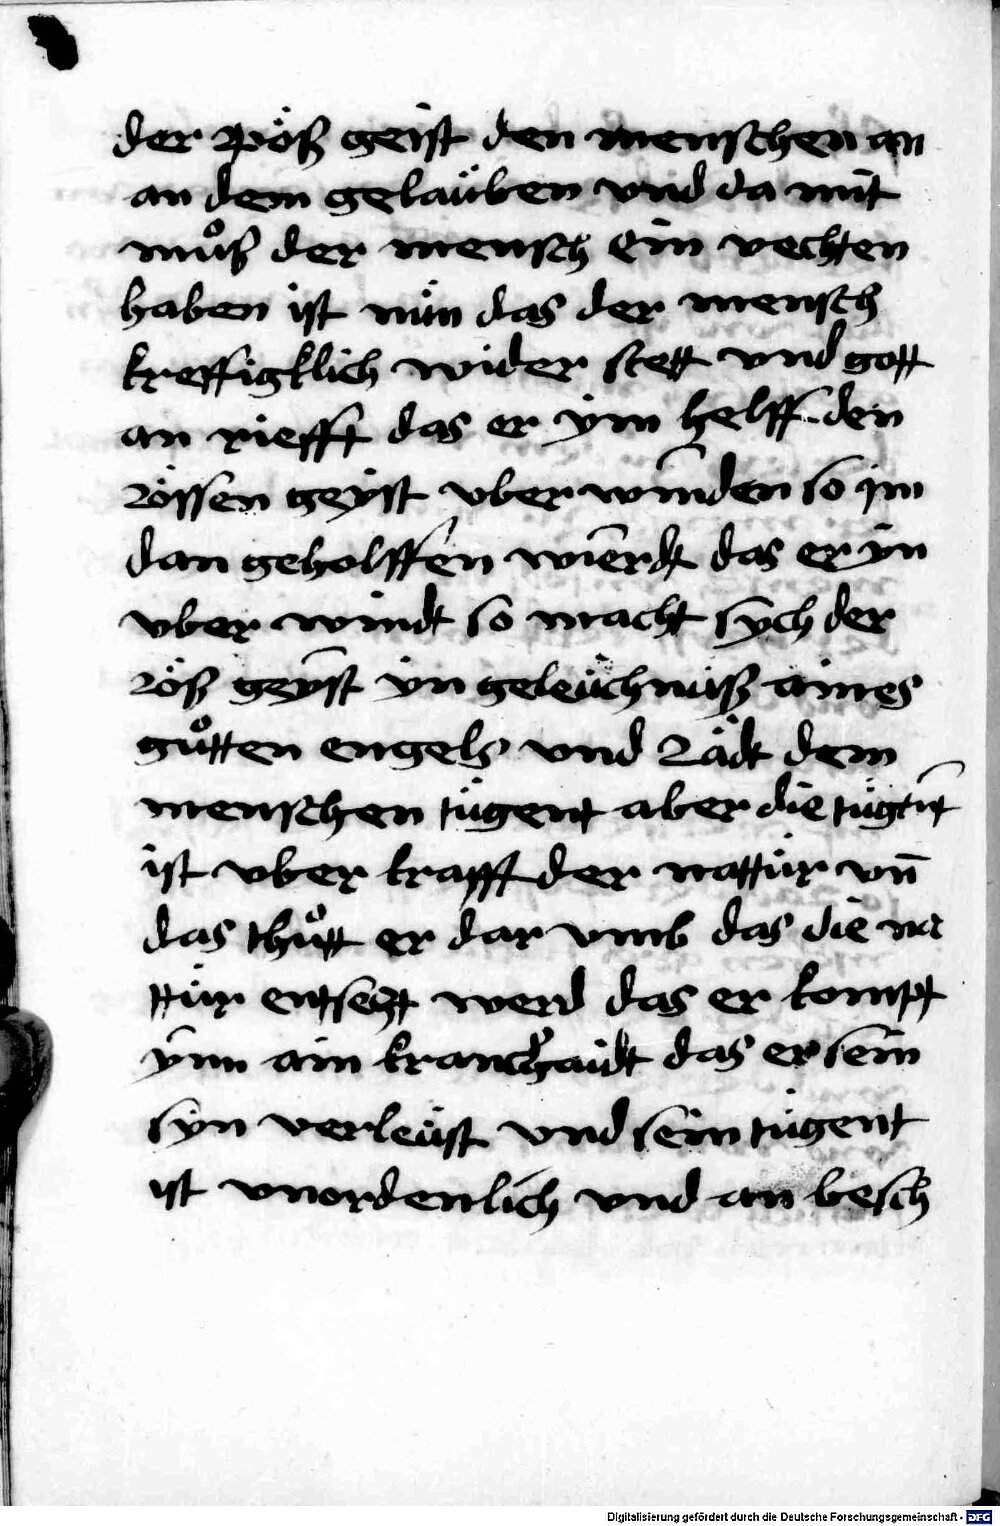 der pöß geist den menschen an
an dem gelaüben vnd da mit
můß der mensch ein vechten
haben ist nün das der mensch
kreffigklich wider stett vnd gott
an riefft das er ÿm helff den
bössen geÿst vber winden so im
dan geholffen wierdt das er ÿn
vber windt so macht sych der
böß geÿst ÿn geleüchnüß aines
gůtten engels vnd Rädt dem
menschen tügent aber die tügent
ist vber krafft der nattür vn̄
das thůtt er dar vmb das die na
ttür entseczt werd das er kompt
ÿnn ain kranckhaidt das er sein
syn verleüst vnd sein tügent
ist vnordenlich vnd an besch
Digitalisierung gefördert durch die Deutsche Forschungsgemeinschaft - DFG